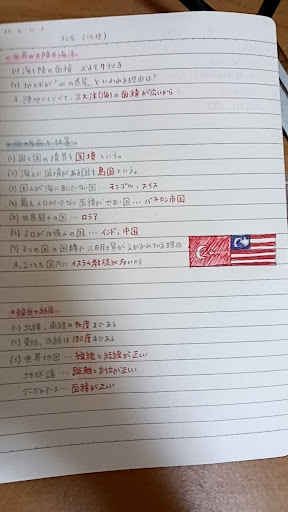 社会(地理)
・世界の大陸や海洋
(1) 海と陸の面積 およそ7対3
(2) 地球が「水の惑星」といわれる理由は?
A. 陸地にくらべて、三大洋(海)の面積が広いから
(1) 国と国の境界を国境という。
(2) 海上に国境がある国を島国という。
(3) 国土が海に面していない国 … モンゴル、スイス
(4) 最も人口が少なく面積がせまい国 … バチカン市国
(5) 世界最大の国 … ロシア
(6) 人口が10億人の国 … インド、中国
(7) 2つの国の国旗に三日月と星がえがかれている理由
A. 2つとも国内にイスラム教徒が多いから
・緯度や経度
(1) 北緯、南緯は90度まである
(2) 東経、西経は180度まである
(3) 世界地図 … 緯線と経線が正しい
地球儀 … 距離と方位が正しい
… 面積が正しい